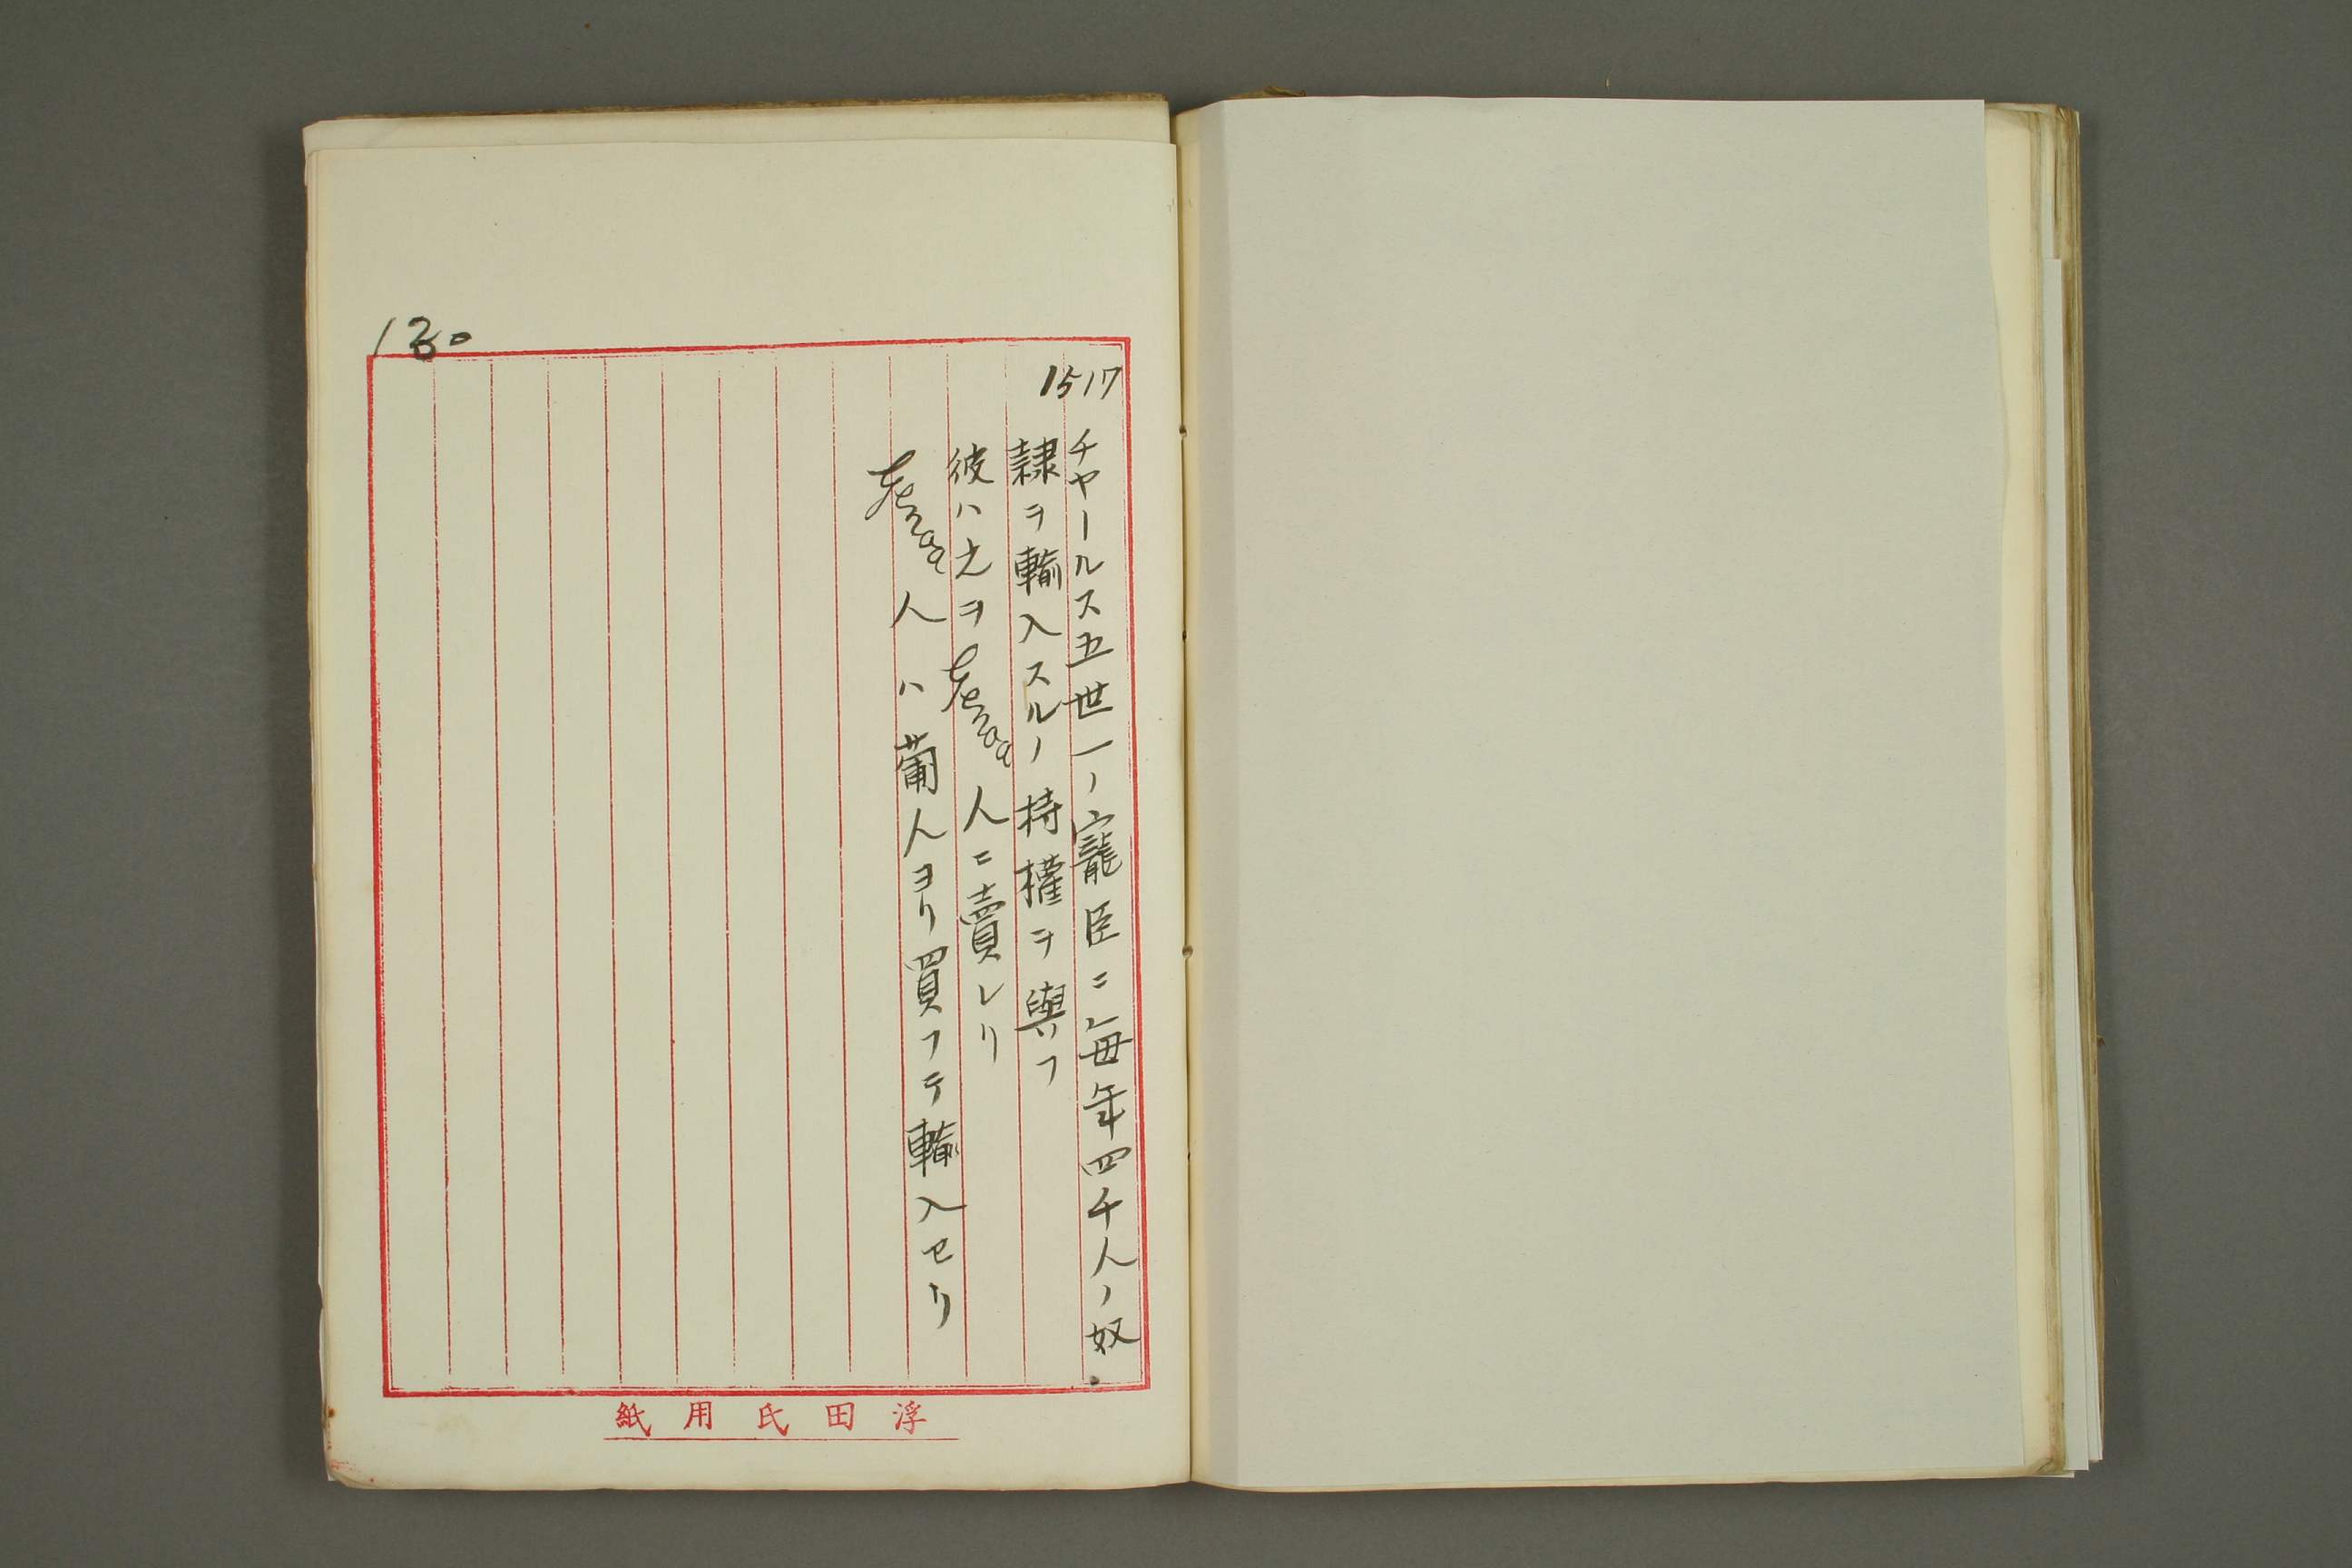 1517
チヤールス五世一ノ寵臣ニ毎年四千人ノ奴
隷ヲ輸入スルノ持權ヲ與フ
彼ハ之ヲGenoa人ニ賣レリ
Genoa人ハ葡人ヨリ買フテ輸入セリ
浮田氏用紙